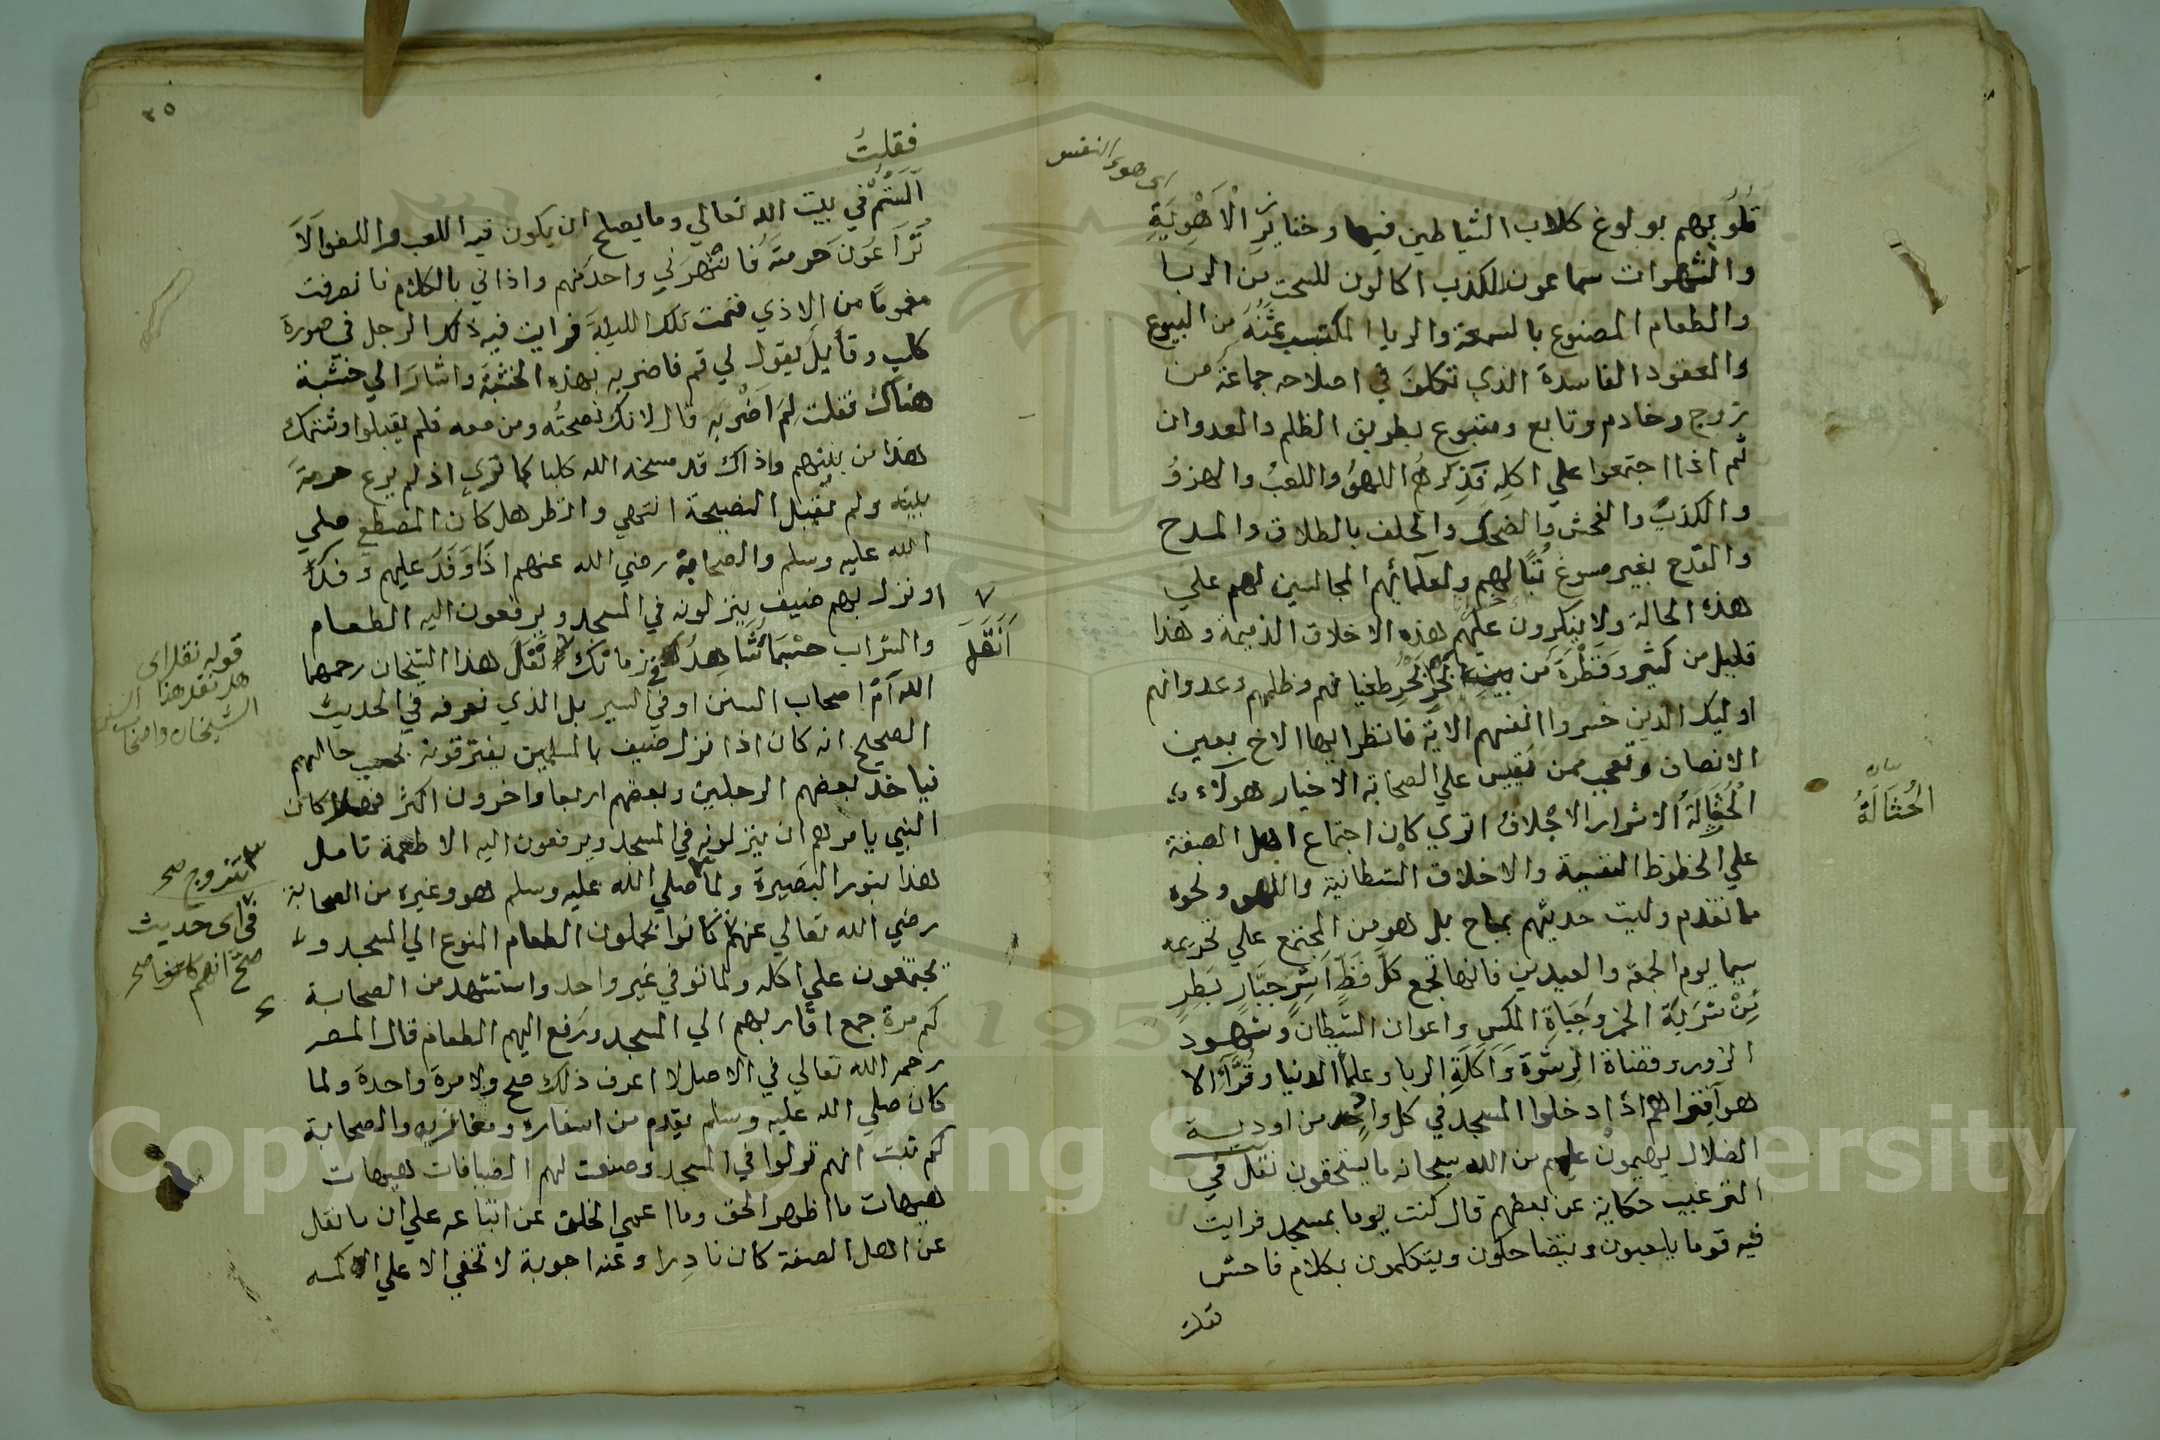 اى هوى النفس
قلوبهم بولوغ كلاب الشياطين فيها وخنازير الاهوية
والشهوات سماعون للكذب اكالون للسحت من الربا
والطعام المصنوع بالسمعة والريا المكتسب ثمنه من البيوع
والعقود الفاسدة الذي تكلف في اصلاحه جماعة من
زوج وخادم وتابع ومتبوع بطريق الظلم والعدوان
ثم اذا اجتمعوا علي اكله فذكرهم اللهو واللعب والهزؤ
والكذب والفحش والضحك والحلف بالطلاق والمدح
والقدح بغير مسوغ تبا لهم ولعلمائهم المجالسين لهم علي
هذه الحالة ولا ينكرون عليهم هذه الاخلاق الذميمة وهذا
قليل من كثير وقطرة من بحر طغيانهم وظلمهم وعدوانهم
اوليك الذين خسروا انفسهم الاية فانظر ايها الاخ بعين
الانصاف وتعجب ممن يقيس علي الصحابة الاخيار هولاء
الحثالة الاشرار الاجلاف اتري كان اجتماع اهل الصفة
علي الحظوظ النفسية والاخلاق الشيطانية واللهو ونحوه
ما تقدم وليت حديثهم بمباح بل هو من المجتمع علي تحريمه
سيما يوم الجمعة والعيدين فانها تجمع كل فظ اشر جبار بطر
من شربة الخمر وجباة المكس واعوان الشيطان وشهود
الزور وقضاة الرشوة واكلة الربا وعلما الدنيا وقراء الا
هوا فتراهم اذا دخلوا المسجد في كل واحد من اودية
الضلال يهيمون عليهم من الله سبحانه ما يستحقون نقل في
الترغيب حكاية عن بعضهم قال كنت يوما بمسجد فرايت
فيه قوما يلعبون ويتضاحكون ويتكلمون بكلام فاحش
فقلت
بيان
الحثالة
٣٥
فقلت
الستم في بيت الله تعالي وما يصلح ان يكون فيه اللعب واللغو الا
تراعون حرمته فانتهرني واحد منهم واذاني بالكلام فانصرفت
مغموما من الاذي فنمت تلك الليلة فرايت فيه ذلك الرجل في صورة
كلب وقائل يقول لي قم فاضربه بهذه الخشبة واشار الي خشبة
هناك فقلت لم اضربه قال لانك نصحته ومن معه فلم يقبلوا وشتمك
هذا من بينهم واذاك قد مسخه الله كلبا كما تري اذ لم يرع حرمة
بيته ولم يقبل النصيحة انتهي وانظر هل كان المصطفي صلي
الله عليه وسلم والصحابة رضي الله عنهم اذا وفد عليهم وفد
او نزل بهم ضيف ينزلونه في المسجد ويرفعون اليه الطعام
والشراب حسبما تشاهده في زمانك نقل هذا الشيخان رحمهما
الله ام اصحاب السنن او في السير بل الذي نعرفه في الحديث
الصحيح انه كان اذا نزل ضيف بالمسلمين يفترقونه بحسب حالهم
فياخذ بعضهم الرجلين وبعضهم اربعا واخرون اكثر فهل كان
النبي يامرهم ان ينزلونه في المسجد ويرفعون اليه الاطعمة تامل
هذا بنور البصيرة ولما صلي الله عليه وسلم هو وغيره من الصحابة
رضي الله تعالي عنهم كانوا يحملون الطعام المنوع الي المسجد و
يجتمعون علي اكله ولما توفي غير واحد واستشهد من الصحابة
كم مرة جمع اقاربهم الي المسجد ورفع اليهم الطعام قال المص
رحمه الله تعالي في الاصل لا اعرف ذلك صح ولا مرة واحدة ولما
كان صلي الله عليه وسلم يقدم من اسفاره ومغازيه والصحابة
كم ثبت انهم نزلوا في المسجد وصنعت لهم الضيافات هيهات
هيهات ما اظهر الحق وما اعمي الخلق عن اتباعه علي ان ما نقل
عن اهل الصفة كان نادرا وعنه اجوبة لا تخفي الا علي الاكمه
أنقل
قوله نقل اى
هل نقل هذا
الشيخان واصحاب السنن
تزوج صح
فى اى حديث
صح انهم كانوا صح
Copyright © King Saud University
195